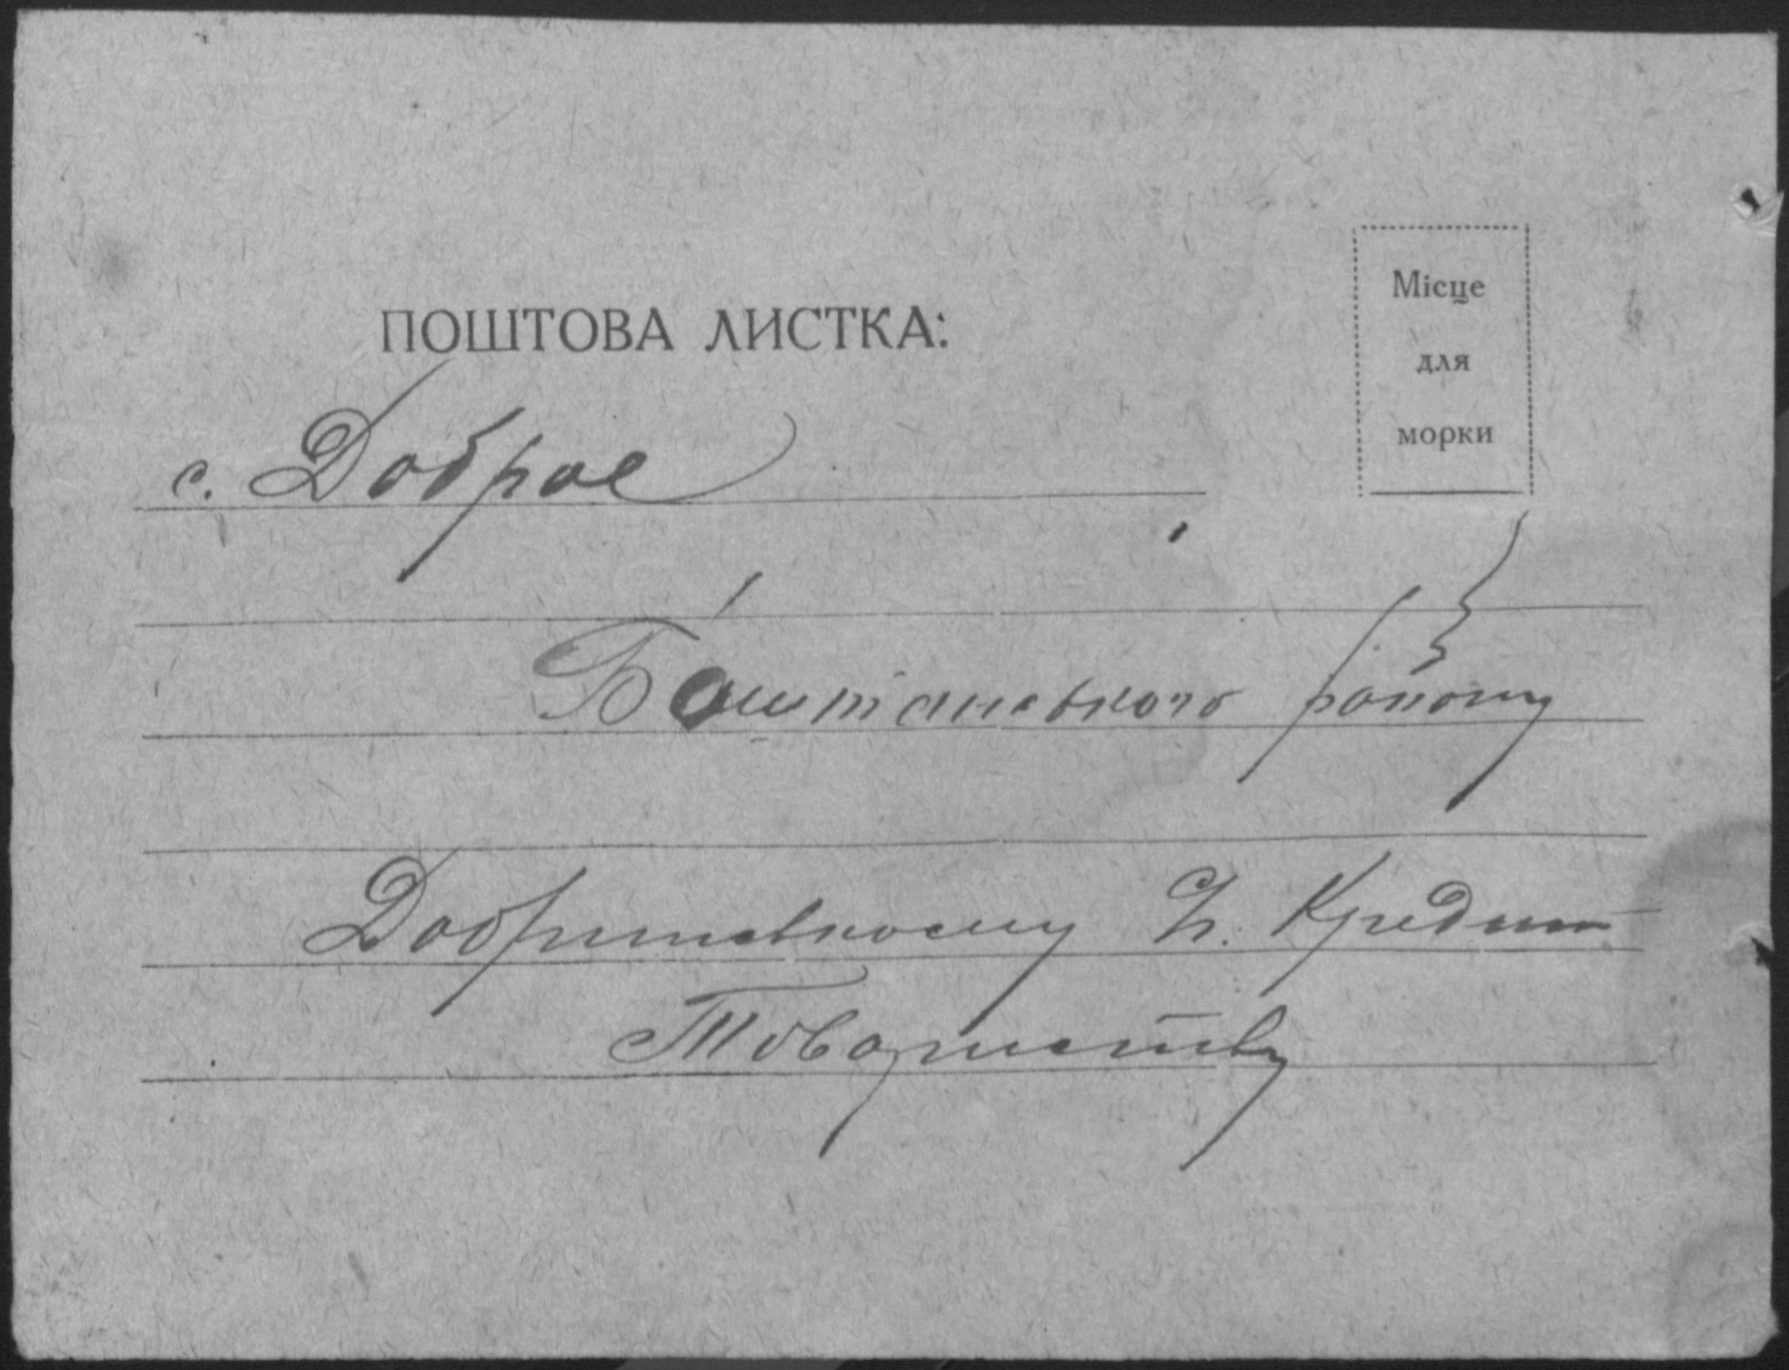 ПОШТОВА ЛИСТКА:
Місце
для
морки
с. Доброе
Баштанського району
Добринському Є. Кредит
Товариству